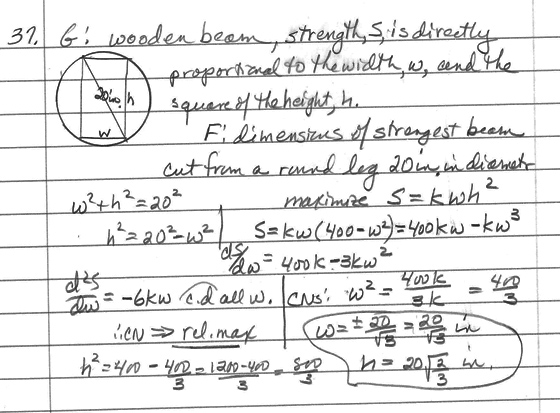 37. G: wooden beam, strength, S, is directly
proportional to the width, w, and the
square of the height, h.
20in. h
w
F: dimensions of strongest beam
cut from a round log 20 in. in diameter
w²+h²=20² maximize S = kwh²
h²=20²-w² S=kw(400-w²)=400kw-kw³
dS/dw = 400k-3kw²
d²S/dw = -6kw c.d all w. CNs: w² = 400k/3k = 400/3
∴CN ⇒ rel.max w=±20/√3 = 20/√3 in
h²=400 - 400/3 = 1200-400/3 = 800/3 h = 20√2/3 in.